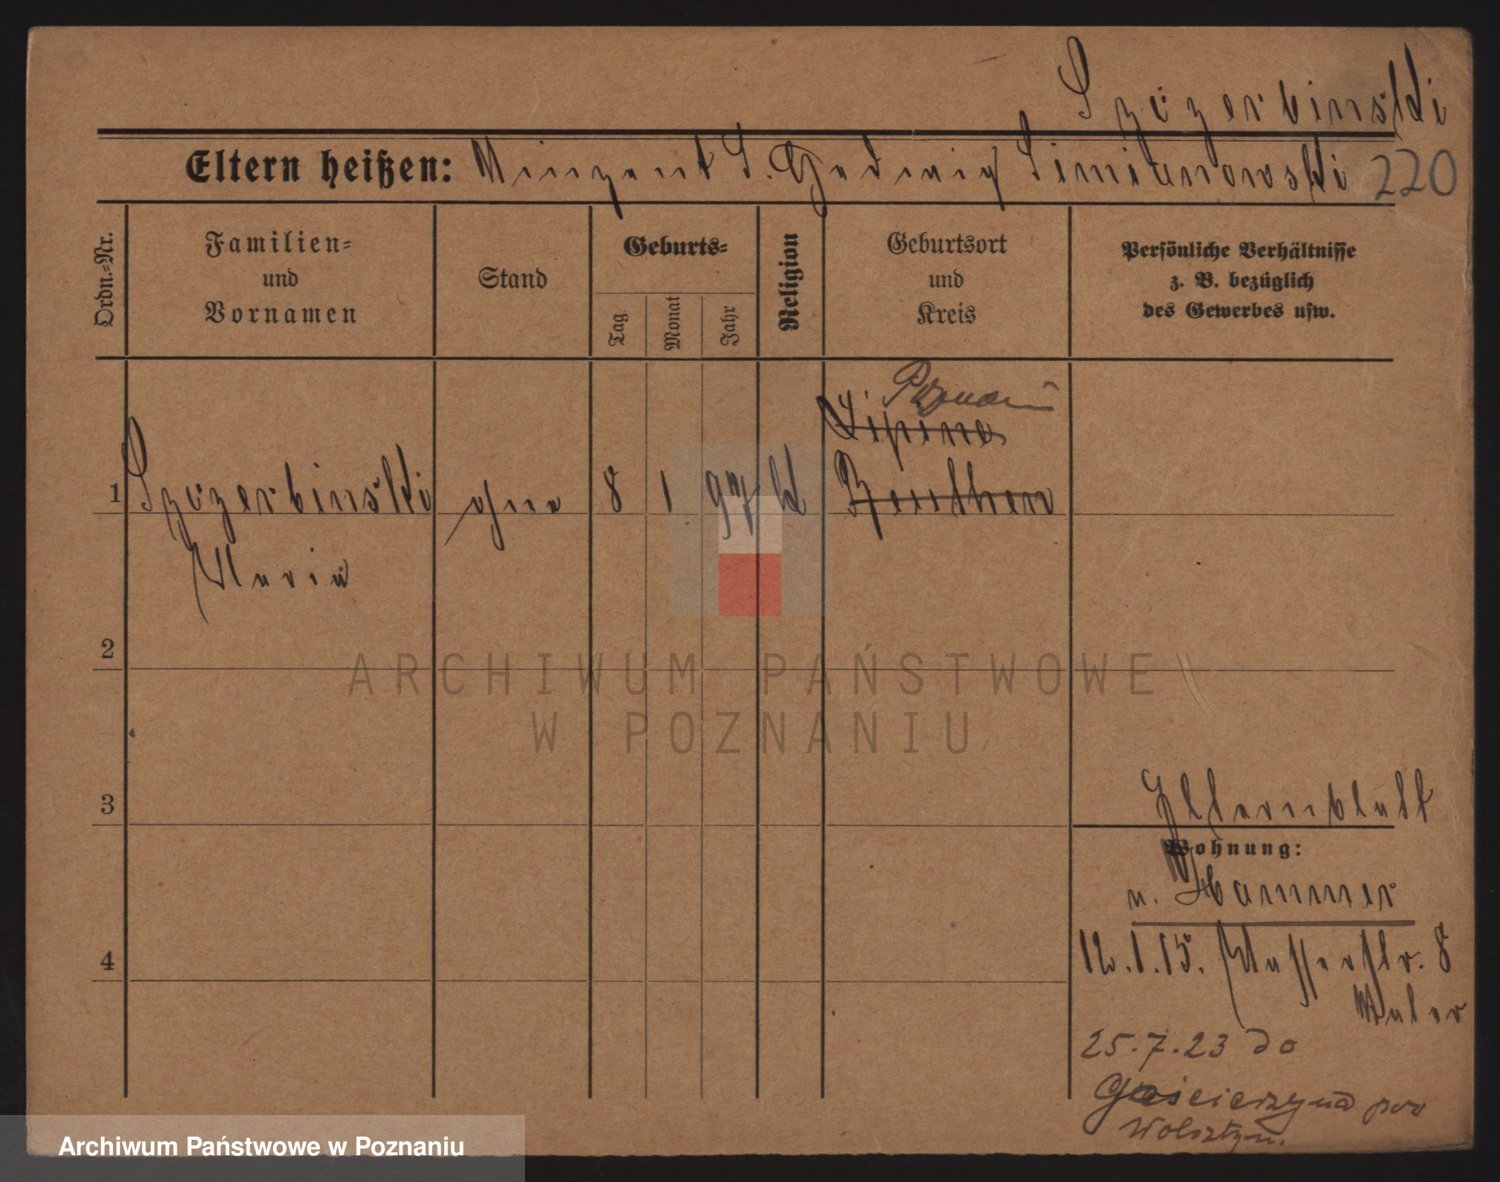 Szczerbinski
Eltern heißen: Vinzent S. Hedwig Simianowski 220
Ordn.=Nr.
Familien=
und
Vornamen
Stand
Geburts=
Tag
Monat
Jahr
Religion
Geburtsort
und
Kreis
Persönliche Verhältnisse
z. B. bezüglich
des Gewerbes usw.
Poznań
Lipine
1 Szczerbinski ohne 8 1 97 k Beuthen
Maria
2
3
4
Elternblatt
Wohnung:
n. Hammer
12.1.15. Wasserstr. 8
25.7.23 do
Gościeszyna pow
Wolsztyn.
ARCHIWUM PAŃSTWOWE
W POZNANIU
Archiwum Państwowe w Poznaniu